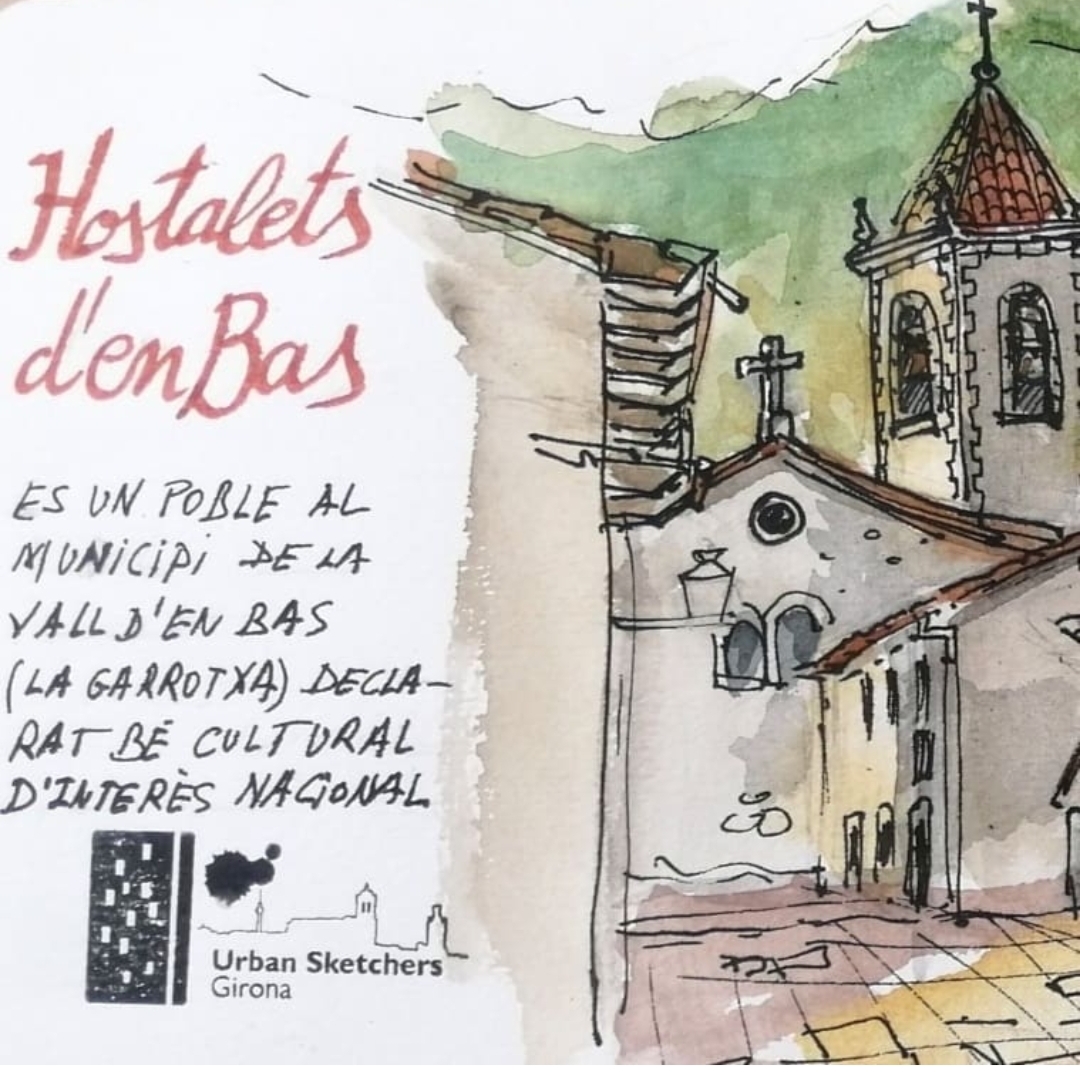 Hostalets
d'en Bas
ES UN POBLE AL
MUNICIPI DE LA
VALL D'EN BAS
(LA GARROTXA) DECLA-
RAT BÉ CULTURAL
D'INTERÈS NACIONAL
Urban Sketchers
Girona